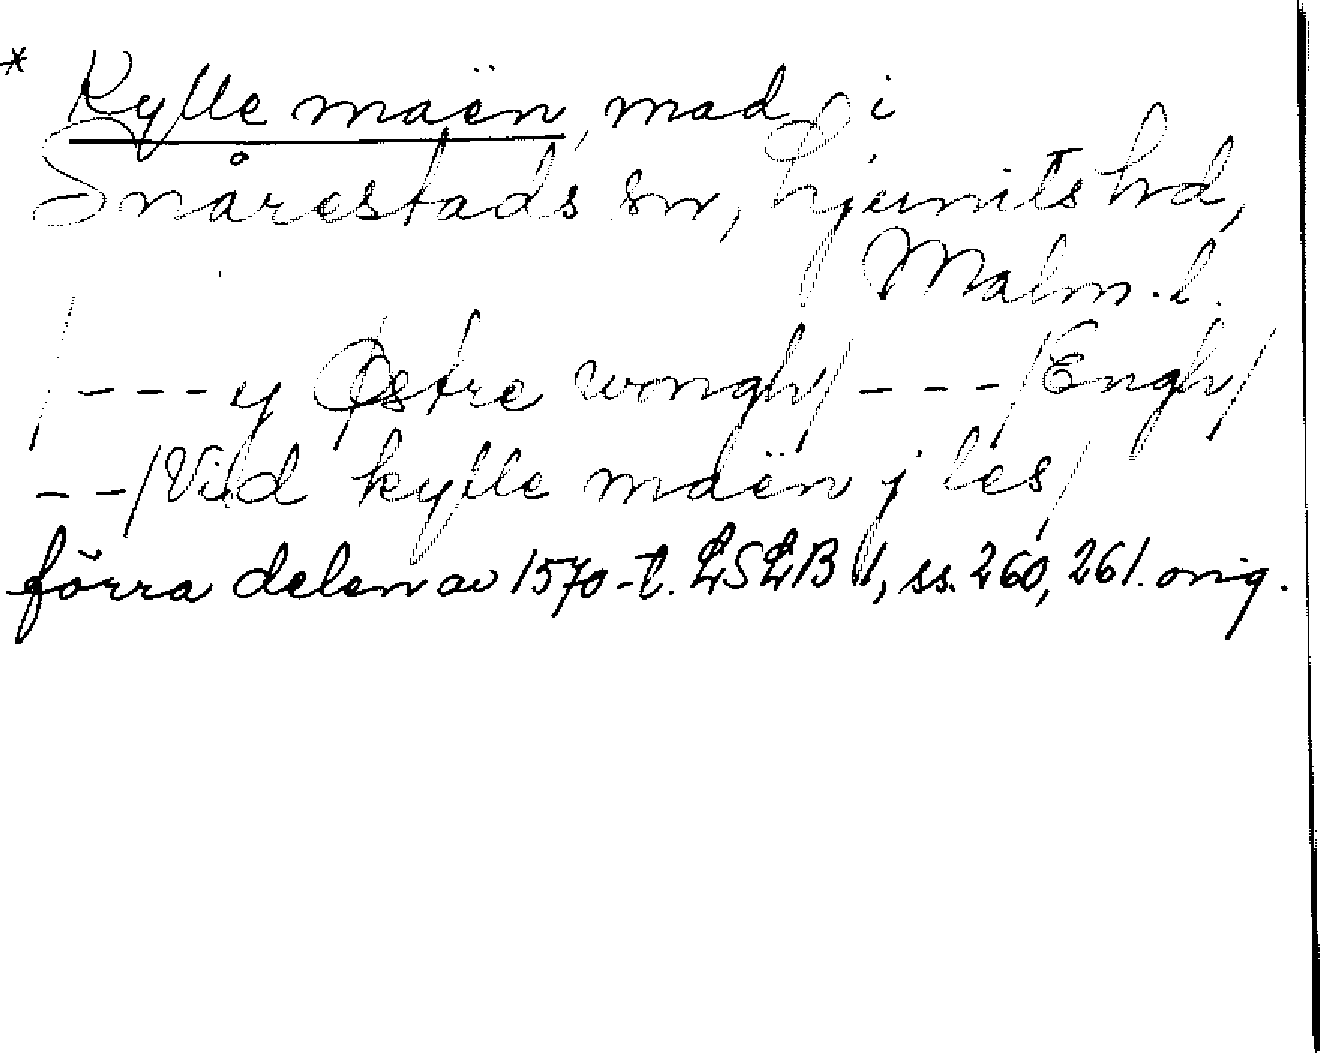 * Kylle maën, mad i
Snårestads sn, Ljunits hd,
Malm. l.
/---y Østre wongh/ ---/Engh/
--/Vid kylle maën j les/
förra delen av 1570-t. LSLB 1, ss. 260, 261. orig.